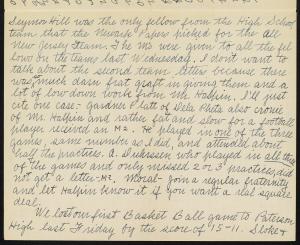 Seymo Hill was the only fellow from the High School
team that the Newark Papers picked for the All
New Jersey Team. The Ms were given to all the fel
low on the teams last Wednesday. I don't want to
talk about the second team letter because there
was much darn that graft in giving them and a
lot of low down work from Mr. Halpin. I'll just
cite one case - Gardner Platt of Delta Theta also cronie
of Mr. Halpin and rather fat and slow for a football
player received an M2. He played in one of the three
games, same number as I did, and attended about
half the practices. A. Dierssen who played in all three
of the games and only missed 2 or 3 practices, did
not get a letter - M2. Moral - join a regular fraternity
and let Halpin know it if you want a d square
deal.
We lost our first Basket Ball game to Paterson
High last Friday by the score of 15-11. Sloke